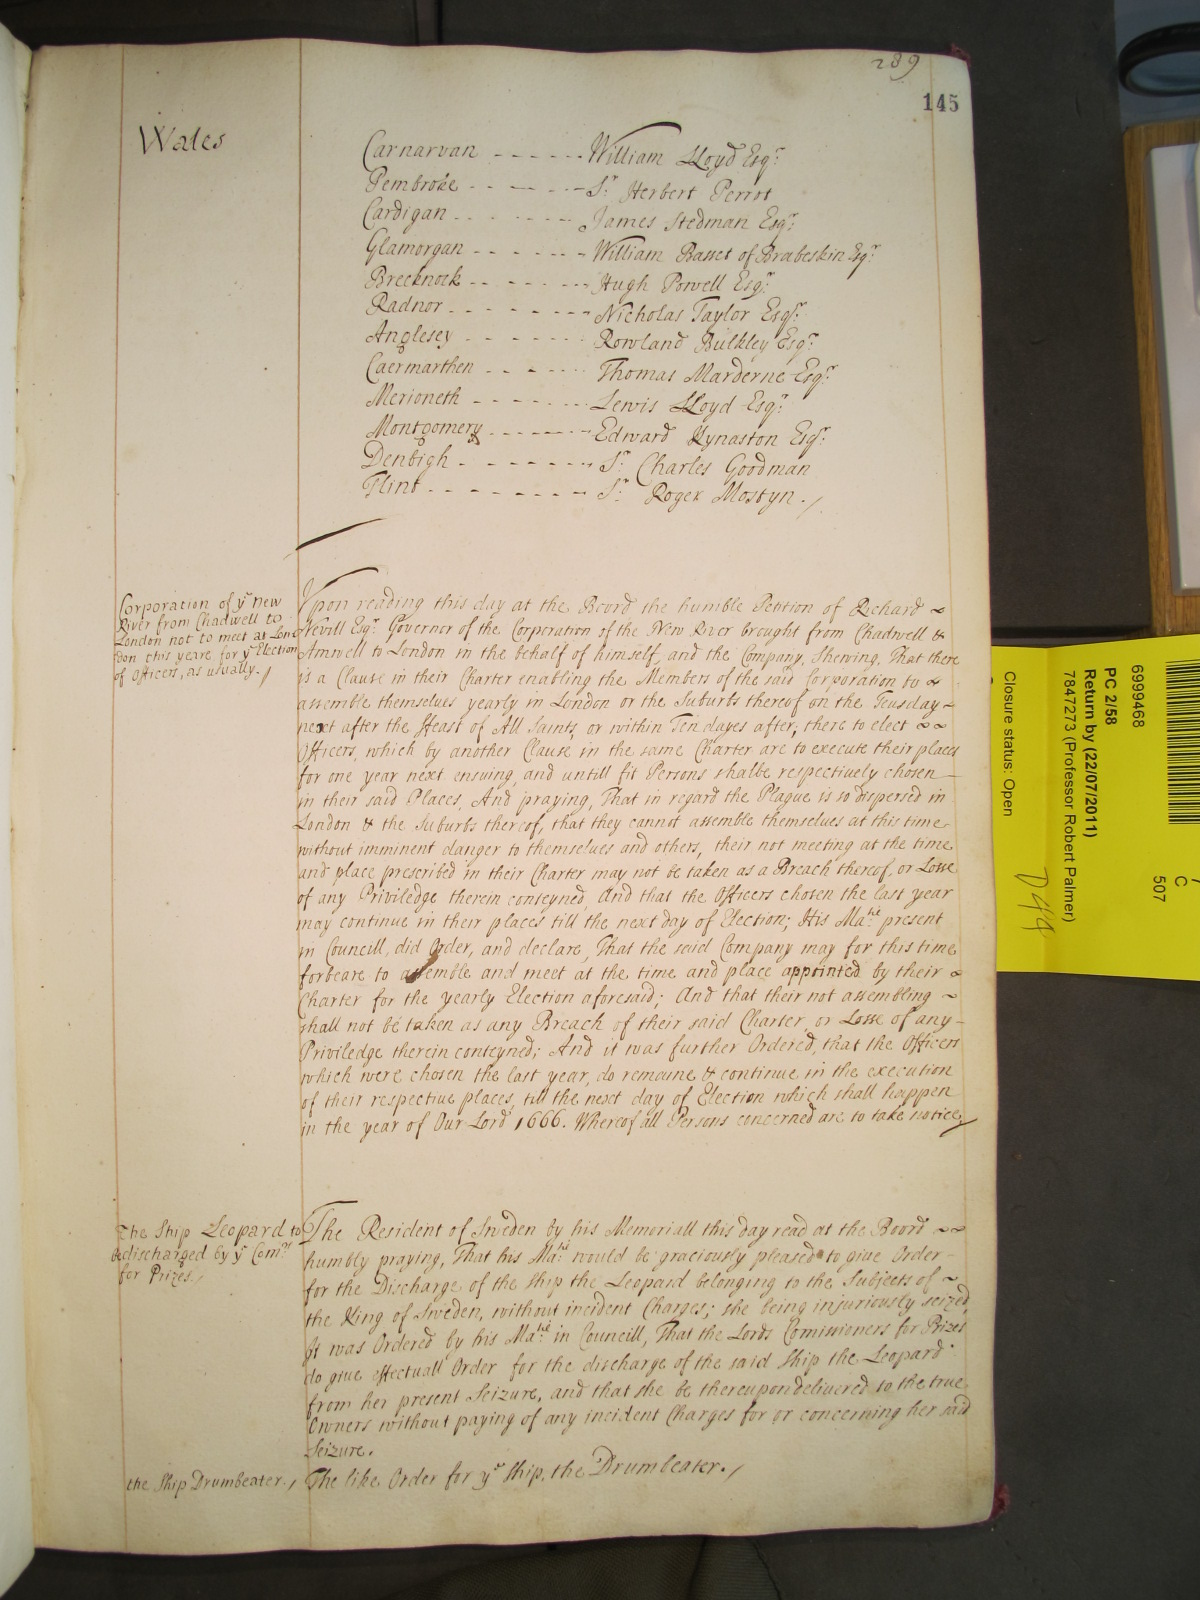 289
145
Wales
Carnarvan - - - - - - William LLoyd Esqr.
Pembroke - - - - - - Sr. Herbert Perrot
Cardigan - - - - - - James Stedman Esqr.
Glamorgan - - - - - - William Basset of Brabeskin Esqr.
Brecknock - - - - - - Hugh Powell Esqr.
Radnor - - - - - - Nicholas Taylor Esqr.
Anglesey - - - - - - Rowland Bulkley Esqr.
Caermarthen - - - - - - Thomas Marderne Esqr.
Merioneth - - - - - - Lewis LLoyd Esqr.
Montgomery - - - - - - Edward Kynaston Esqr.
Denbigh - - - - - - Sr. Charles Goodman
Flint - - - - - - Sr. Roger Mostyn./
Corporation of ye new
River from Chadwell to
London not to meet at Lon
don this yeare for ye Election
of Officers, as usually./
Upon reading this day at the Board the humble Petition of Richard ~
Nevill Esqr. Governor of the Corporation of the New River brought from Chadwell &
Amwell to London in the behalf of himself, and the Company, Shewing, That there
is a Clause in their Charter enabling the Members of the said Corporation to ~
assemble themselves yearly in London or the Suburbs thereof on the Teusday ~
next after the ffeast of All Saints, or within Ten dayes after, there to elect ~ ~
Officers, which by another Clause in the same Charter are to execute their places
for one year next ensuing, and untill fit Persons shalbe respectively chosen
in their said Places, And praying, That in regard the Plague is so dispersed in
London & the Suburbs thereof, that they cannot assemble themselues at this time
without imminent danger to themselues and others, their not meeting at the time
and place prescribed in their Charter may not be taken as a Breach thereof, or Losse
of any Priviledge therein conteyned, And that the Officers chosen the last year
may continue in their places till the next day of Election; His Matie. present
in Councill, did Order, and declare, That the said Company may for this time
forbeare to assemble and meet at the time and place appointed by their ~
Charter for the yearly Election aforesaid; And that their not assembling ~
shall not be taken as any Breach of their said Charter, or Losse of any -
Priviledge therein conteyned; And it was further Ordered, that the Officers
which were chosen the last year, do remaine & continue in the execution
of their respective places, till the next day of Election which shall happen
in the year of Our Lord 1666. Whereof all Persons concerned are to take notice/
The Ship Leopard to
be discharged by ye Comrs
for Prizes./
The Resident of Sweden by his Memoriall this day read at the Board ~ ~
humbly praying, That his Matie. would be graciously pleased to giue Order -
for the Discharge of the Ship the Leopard belonging to the Subjects of ~
the King of Sweden, without incident Charges; she being injuriously seized,
It was Ordered by his Matie. in Councill, That the Lords Comissioners for Prizes
do giue effectuall Order for the discharge of the said Ship the Leopard
from her present Seizure, and that she be thereupon delivered to the true
Owners without paying of any incident Charges for or concerning her said
Seizure.
the Ship Drumbeater./
The like Order for ye Ship, the Drumbeater./
6999468
PC 2/58
Return by (22/07/2011)
7847273 (Professor Robert Palmer)
Closure status: Open
C
507